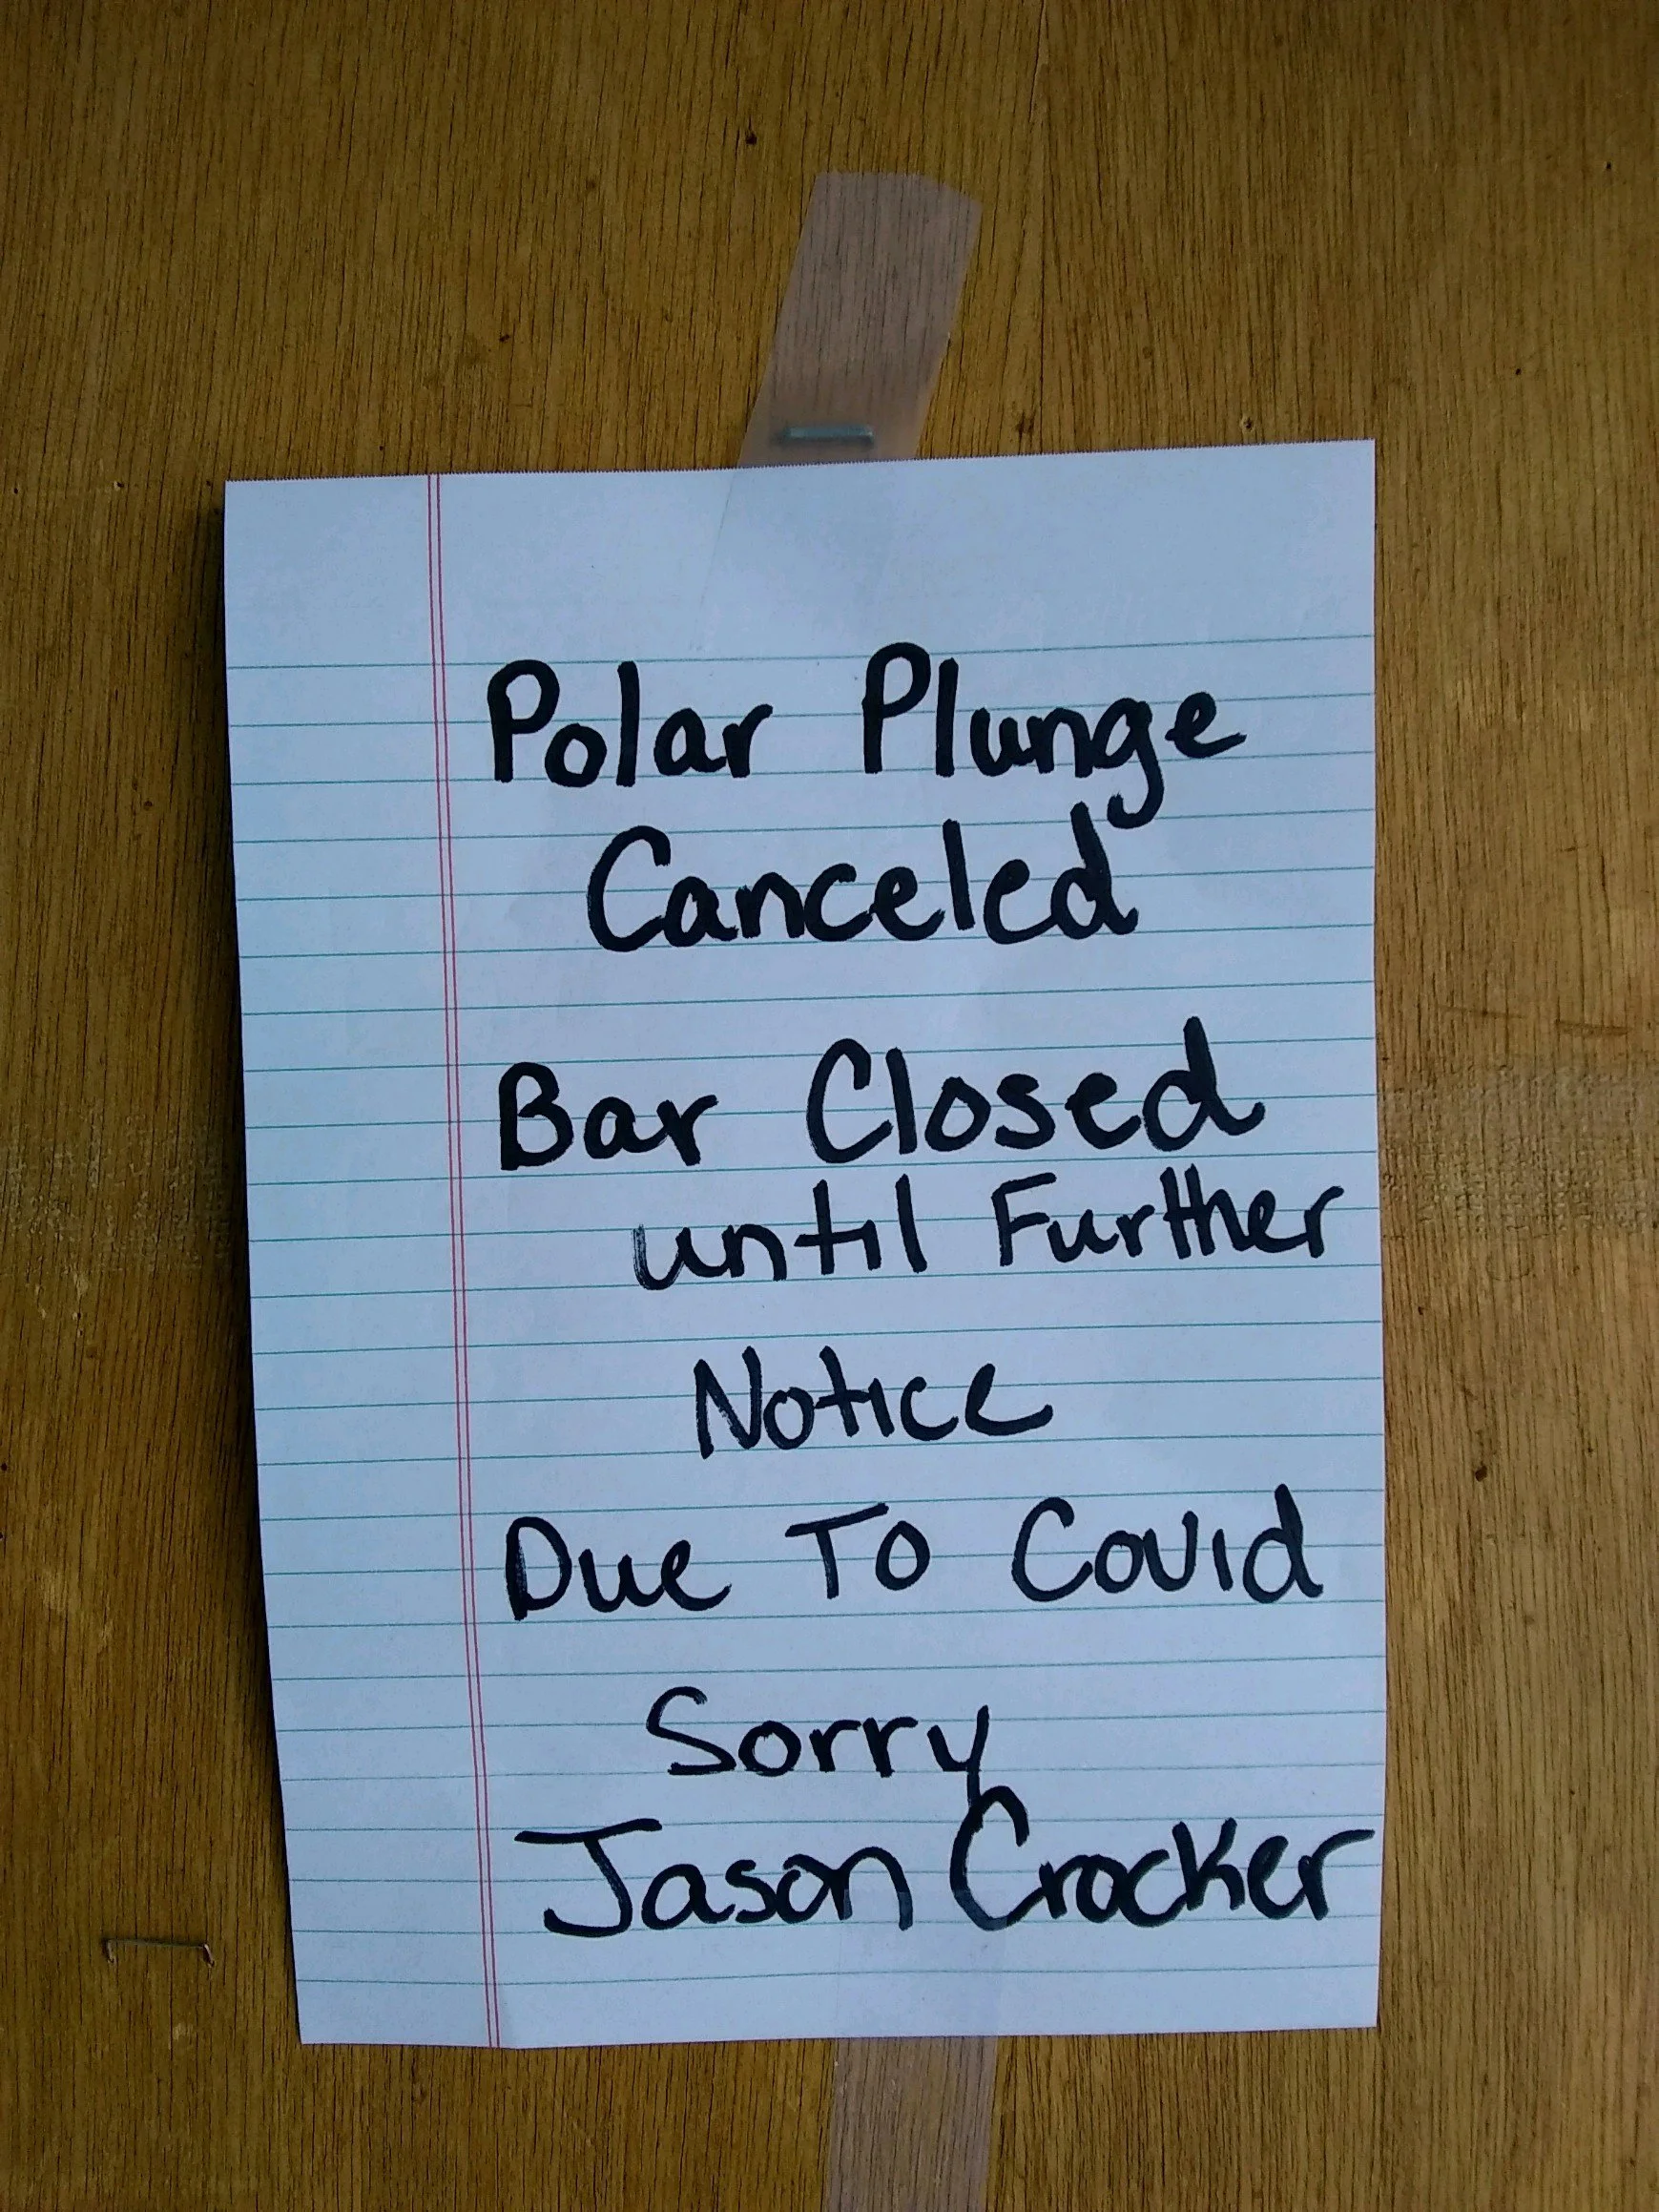 Polar Plunge
Canceled
Bar Closed
until Further
Notice
Due To Covid
Sorry
Jason Crocker